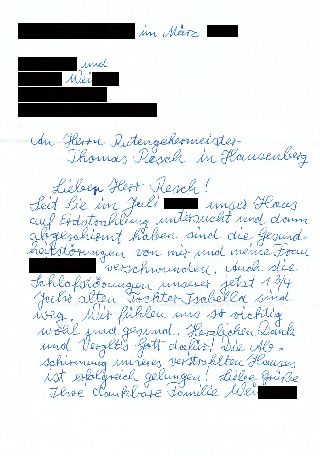 im März
und
Mei
An Herrn Rutengehermeister
Thomas Resch in Hausenberg
Lieber Herr Resch!
Seit Sie im Juli unser Haus
auf Erdstrahlung untersucht und dann
abgeschirmt haben sind die Gesund-
heitsstörungen von mir und meine Frau
verschwunden. Auch die
Schlafstörungen unserer jetzt 1 3/4
Jahr alten Tochter Isabella sind
weg. Wir fühlen uns so richtig
wohl und gesund. Herzlichen Dank
und Vergelt's Gott dafür! Die Ab-
schirmung unseres verstrahlten Hauses
ist erfolgreich gelungen! Liebe Grüße
Ihre dankbare Familie Mei